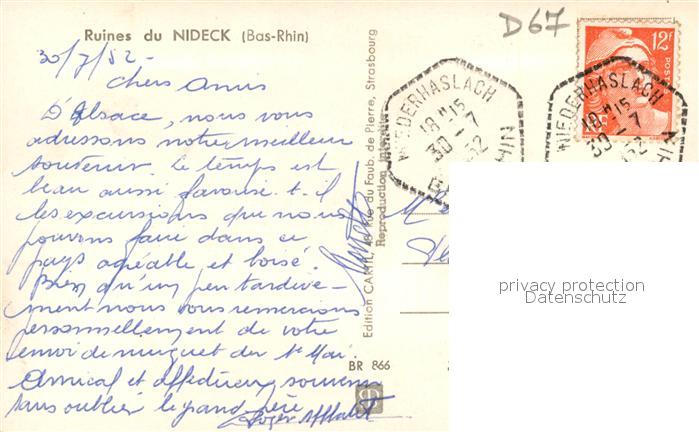 Ruines du NIDECK (Bas-Rhin)
D67
12F
POSTES
30/7/52-
chers Amis
D'Alsace, nous vous
adressons notre meilleur
souvenir. Le temps est
beau aussi favorise-t-il
les excursions que nous
pouvons faire dans ce
pays agréable et boisé.
Bien qu'un peu tardive-
ment nous vous remercions
personnellement de votre
envoi de muguet du 1er Mai.
Amical et affectueux souvenir
sans oublier le grand père
Roger
NIEDERHASLACH
18 H 15
30-7
52
RHIN
NIEDERHASLACH
18 H 15
30-7
Edition CARTIL, rue du Faub. de Pierre, Strasbourg
Reproduction interdite
BR 866
privacy protection
Datenschutz